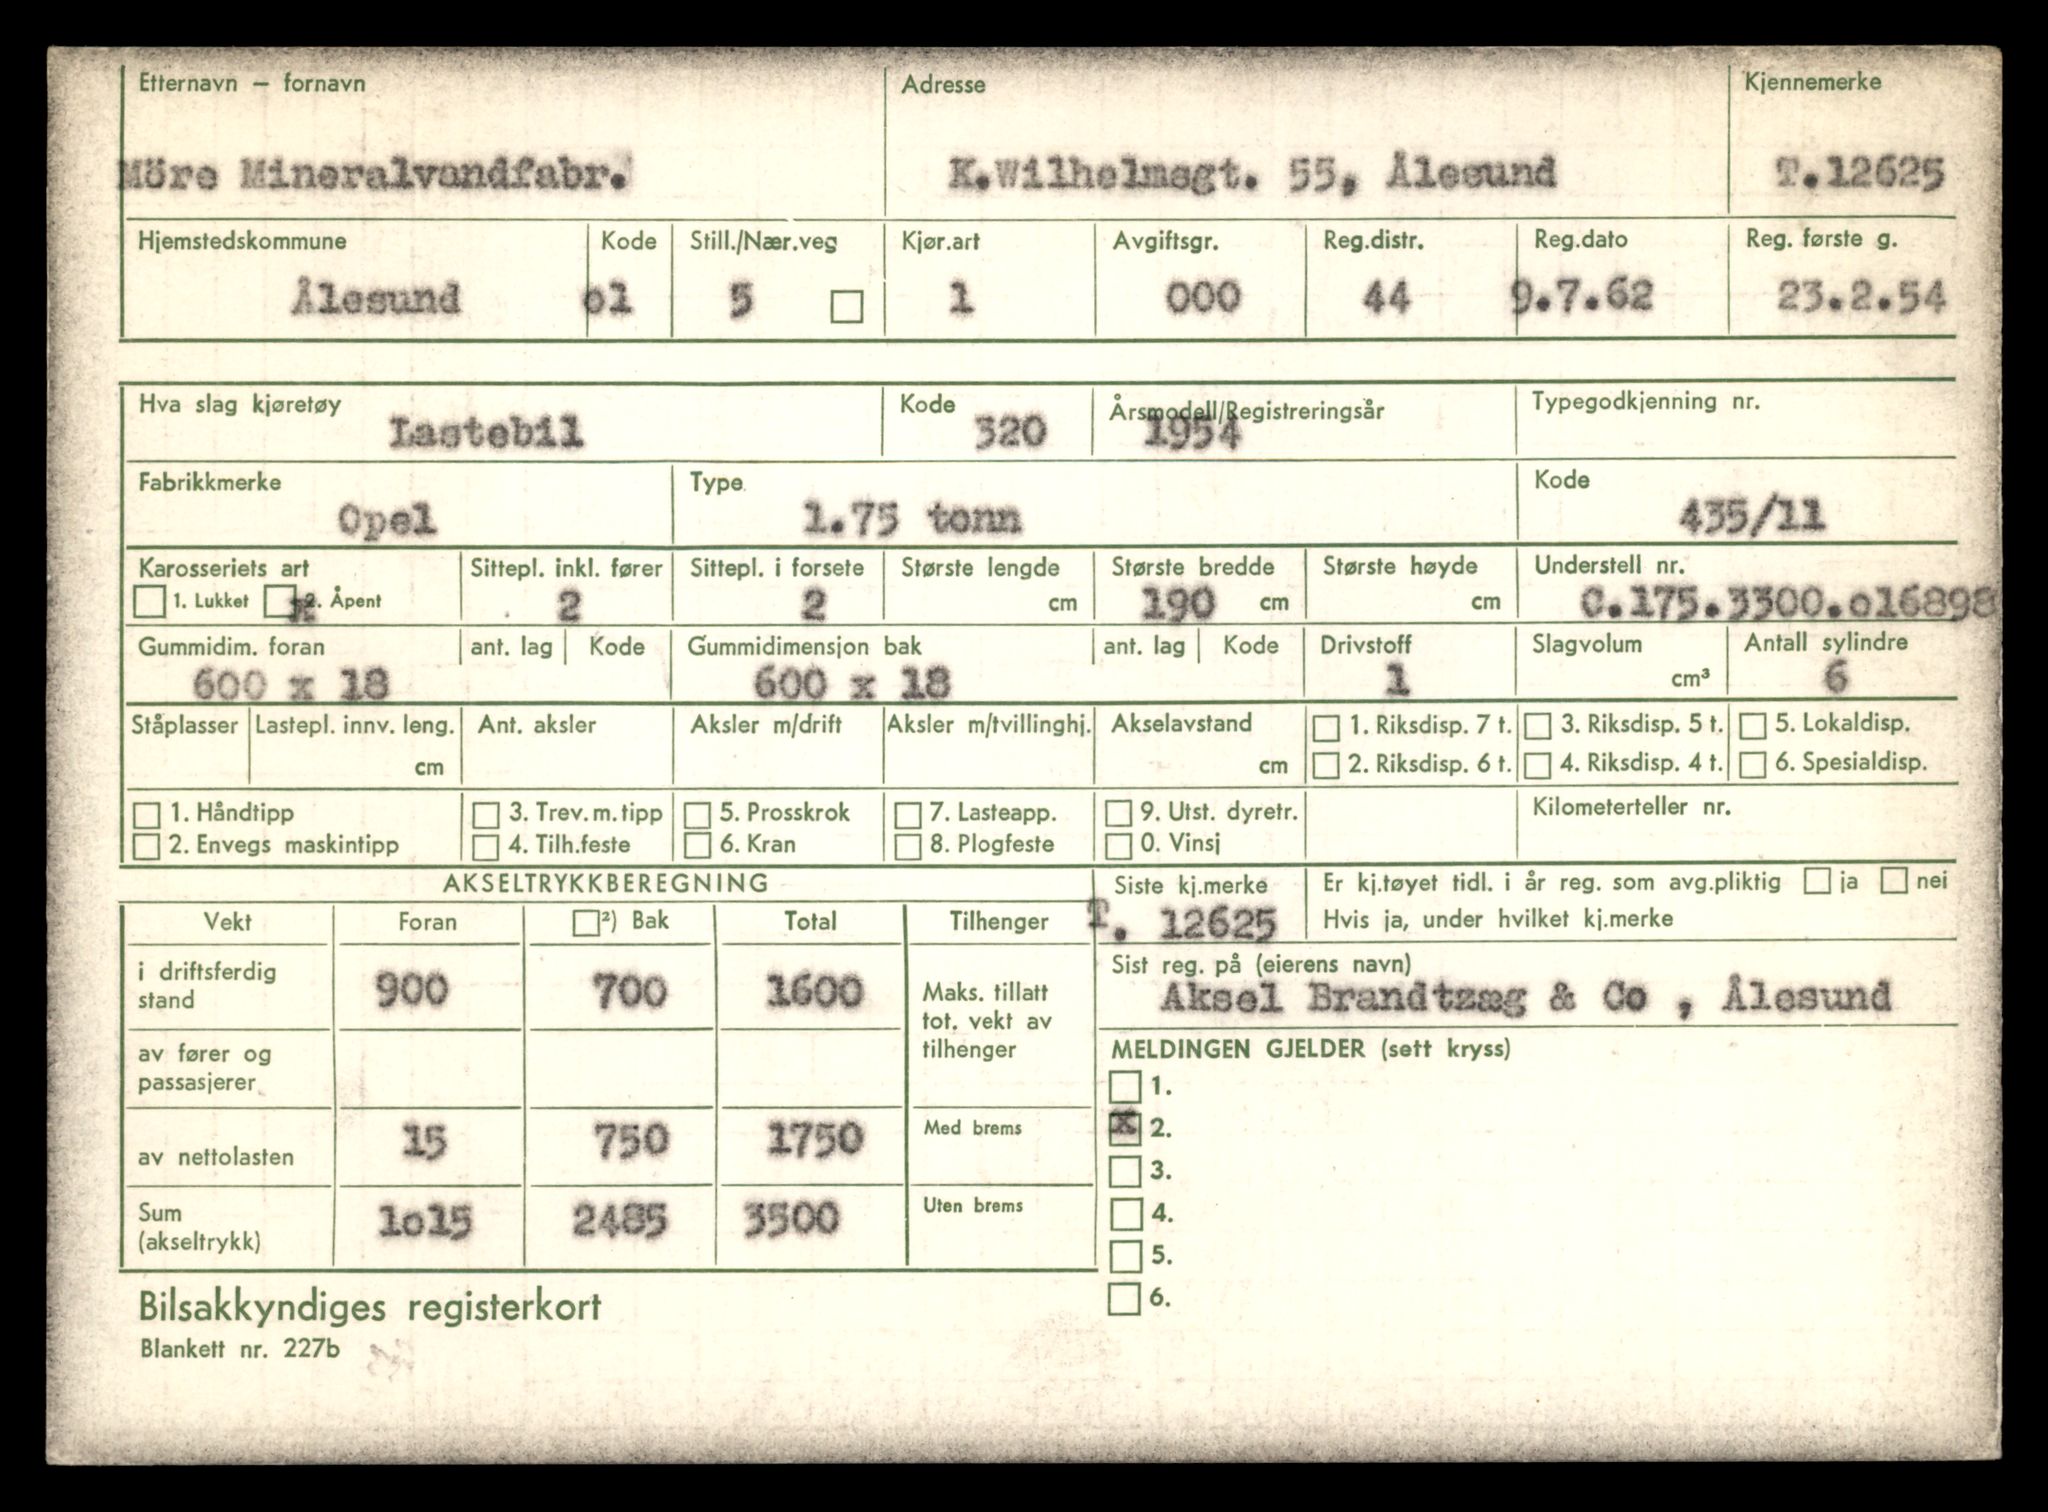 Etternavn – fornavn Adresse Kjennemerke
Möre Mineralvandfabr. K.Wilhelmsgt. 55, Ålesund T.12625
Hjemstedskommune Kode Still./Nær.veg Kjør.art Avgiftsgr. Reg.distr. Reg.dato Reg. første g.
Ålesund o1 5 1 000 44 9.7.62 23.2.54
Hva slag kjøretøy Kode Årsmodell/Registreringsår Typegodkjenning nr.
Lastebil 320 1954
Fabrikkmerke Type Kode
Opel 1.75 tonn 435/11
Karosseriets art Sittepl. inkl. fører Sittepl. i forsete Største lengde Største bredde Største høyde Understell nr.
1. Lukket x 2. Åpent 2 2 cm 190 cm cm C.175.3300.o16898
Gummidim. foran ant. lag Kode Gummidimensjon bak ant. lag Kode Drivstoff Slagvolum Antall sylindre
600 x 18 600 x 18 1 cm³ 6
Ståplasser Lastepl. innv. leng. Ant. aksler Aksler m/drift Aksler m/tvillinghj. Akselavstand 1. Riksdisp. 7 t. 3. Riksdisp. 5 t. 5. Lokaldisp.
cm cm 2. Riksdisp. 6 t. 4. Riksdisp. 4 t. 6. Spesialdisp.
1. Håndtipp 3. Trev.m.tipp 5. Prosskrok 7. Lasteapp. 9. Utst. dyretr. Kilometerteller nr.
2. Envegs maskintipp 4. Tilh.feste 6. Kran 8. Plogfeste 0. Vinsj
AKSELTRYKKBEREGNING Siste kj.merke Er kj.tøyet tidl. i år reg. som avg.pliktig ja nei
Vekt Foran ²) Bak Total Tilhenger T. 12625 Hvis ja, under hvilket kj.merke
i driftsferdig
stand 900 700 1600
Maks. tillatt
tot. vekt av
tilhenger
Sist reg. på (eierens navn)
Aksel Brandtzæg & Co , Ålesund
av fører og
passasjerer
MELDINGEN GJELDER (sett kryss)
1.
x 2.
3.
4.
5.
6.
av nettolasten 15 750 1750 Med brems
Sum
(akseltrykk) 1o15 2485 3500 Uten brems
Bilsakkyndiges registerkort
Blankett nr. 227b